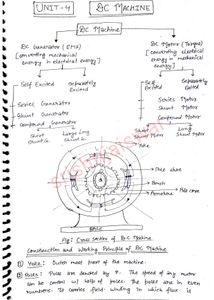 UNIT-4 DC MACHINE
DC Machine
DC Generator (EMF)
[converting mechanical
energy in electrical energy]
DC Motor (Torque)
[converting electrical
energy in mechanical
energy]
Self Excited
Separately
Excited
Self
Excited
Separately
Excited
Series Generator
Shunt Generator
Compound Generator
Short
Shunt
Long
Shunt
Series Motor
Shunt Motor
Compound Motor
Short
Shunt
Long
Shunt
Yoke
Pole shoe
Brush
Armature
Pole core
BASE
Fig: Cross Section of DC Machine
Construction and Working Principle of DC Machine
① Yoke: Outer most part of the machine.
② Poles: Poles are denoted by P. The speed of any motor
can be control w/ help of poles. The poles are in even
numbers. It carries field winding in which flux is